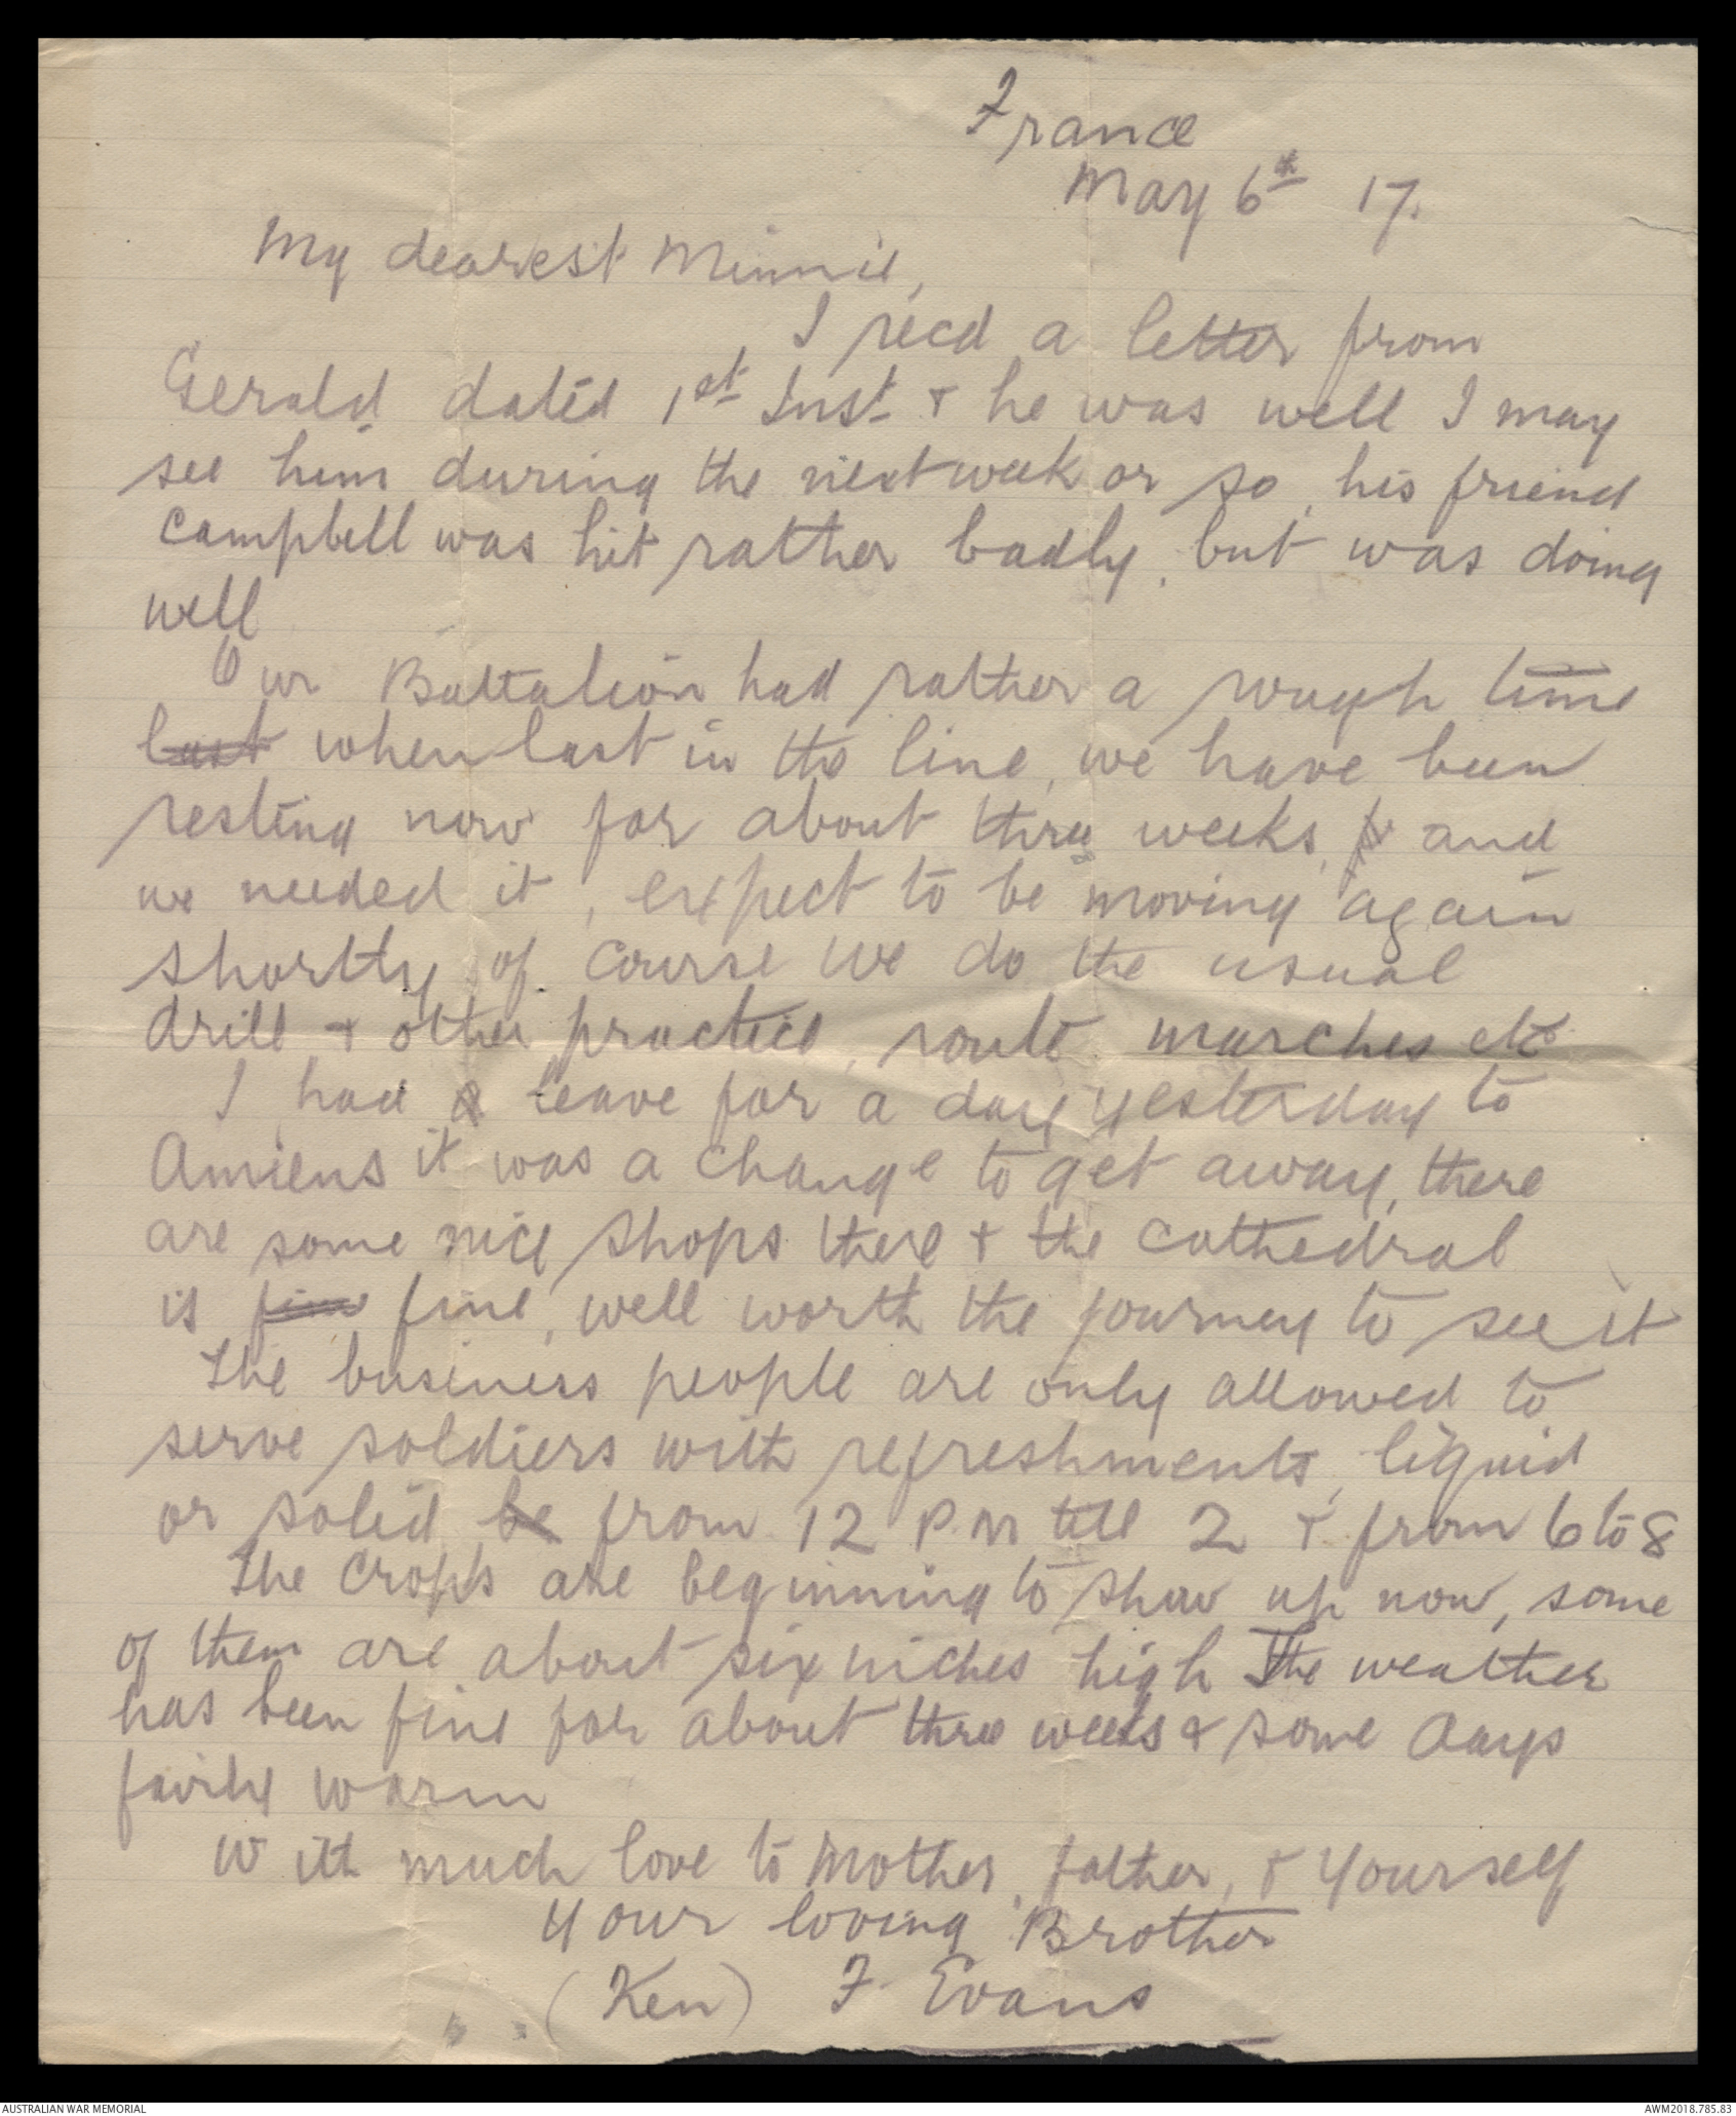 France
May 6th 17.
My dearest Minnie,
I recd a letter from
Gerald dated 1st Inst & he was well I may
see him during the next week or so, his friend
Campbell was hit rather badly, but was doing
well
Our Battalion had rather a rough time
last when last in the line, we have been
resting now for about three weeks, and
we needed it, expect to be moving again
shortly of course we do the usual
drill & other practice, route marches etc
I had a leave for a day yesterday to
Amiens it was a change to get away, there
are some nice shops there & the cathedral
is fine fine, well worth the journey to see it
The business people are only allowed to
serve soldiers with refreshments, liquid
or solid be from 12 P.M till 2 & from 6 to 8
The crops are beginning to show up now, some
of them are about six inches high The weather
has been fine for about three weeks & some days
fairly warm
With much love to Mother, father, & yourself
Your loving Brother
(Ken) F. Evans
AUSTRALIAN WAR MEMORIAL
AWM2018.785.83